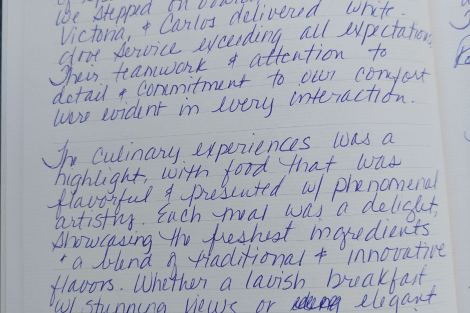 we stepped on
Victoria, & Carlos delivered white
glove service exceeding all expectations.
Their teamwork & attention to
detail & commitment to our comfort
were evident in every interaction.
The culinary experiences was a
highlight, with food that was
flavorful & presented w/ phenomenal
artistry. Each meal was a delight,
showcasing the freshest ingredients
& a blend of traditional & innovative
flavors. Whether a lavish breakfast
w/ stunning views or elegant